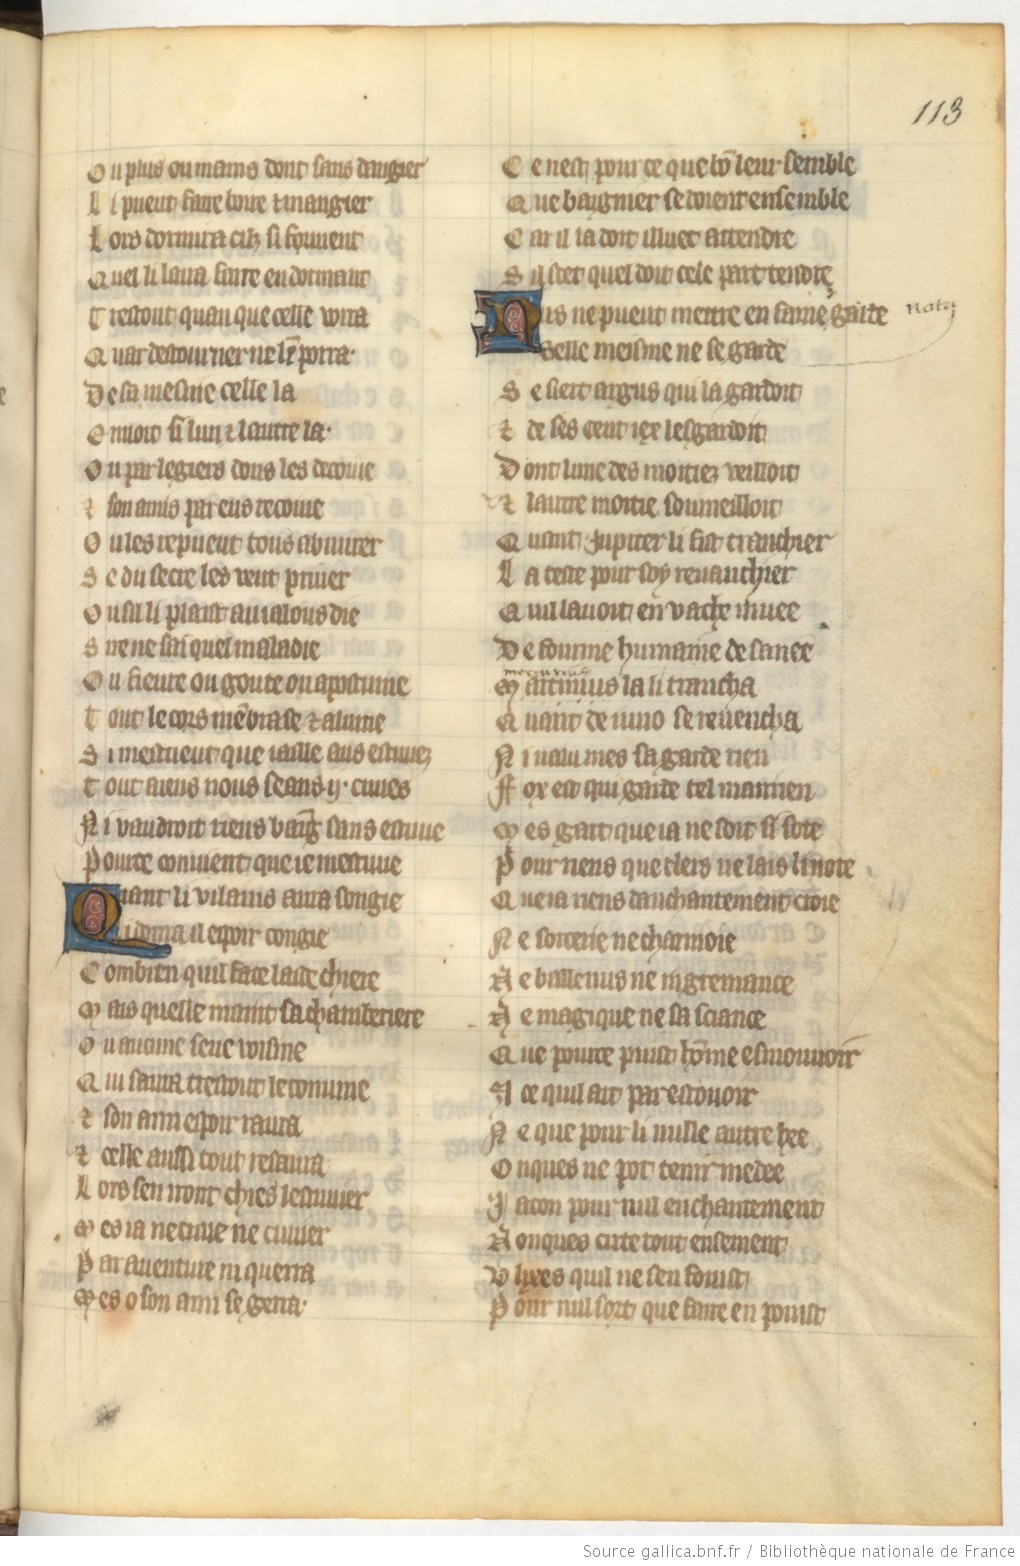 113
Ou plus ou mains dont sans dangier
Li puent faire boire ⁊ mangier
Lors dormira cilz si formont
Quel li laira faire en dormant
Trestout quan que celle vorra
Quar destourner ne len porra
De sa mesme celle la
Enuoit si lun ⁊ lautre la
Ou par legiers dons les decoiue
⁊ son amis par eus recoiue
Ou les repuent tous abuurer
Se du secre les veut priuer
Ou sil li plaist au ialous die
Sire ne sai quel maladie
Ou fieure ou goute ou apostume
Tout le cors mēbrase ⁊ alume
Si mestieut que iaille aus estuues
Tout aiens nous seans .ij. cuues
Ni vaudroit riens baig sans estuue
Pource conuient que ie mestuue
Quant li vilains aura songie
Li donra il espoir congie
Combien quil face laide chiere
Mais quelle maint sa chamberiere
Ou aucune seue voisine
Qui saura trestout le couuine
⁊ son ami espoir raura
⁊ celle aussi tout resaura
Lors sen iront chies lestuuier
Mes ia ne cuue ne cuuier
Par auenture ni querra
Mes o son ami se gerra
Ce nest pour ce que bō leur semble
Que baignier se doient ensemble
Car il la doit illuec attendre
Sil scet quel doit cele part tendre
Nus ne puent mettre en fame garde
Selle meisme ne se garde
nota
Se siert argus qui la gardoit
⁊ de ses cent iex lesgardoit
Dont lune des moities veilloit
⁊ lautre moitie sommeilloit
Quant Jupiter li fist tranchier
La teste pour soy reuanchier
Qui lauoit en vache muee
De fourme humaine desanee
mercurius
Marcinius la li trancha
Quant de iuno se reuencha
Ni valu mes sa garde rien
Fox est qui garde tel mairrien
Mes gart que ia ne soit si sote
Pour riens que clers ne lais li note
Que ia riens danchantement croie
Ne sorcerie ne charmoie
Ne ballenus ne nigremance
Ne magique ne sa sciance
Que pource puist hōme esmouuoir
A ce quil ait par estouoir
Ne que pour li nulle autre hee
Onques ne pot tenir medee
Jason pour nul enchantement
Nonques circe tout ensement
Vlixes quil ne sen fouist
Pour nul sort que faire en pouist
Source gallica.bnf.fr / Bibliothèque nationale de France